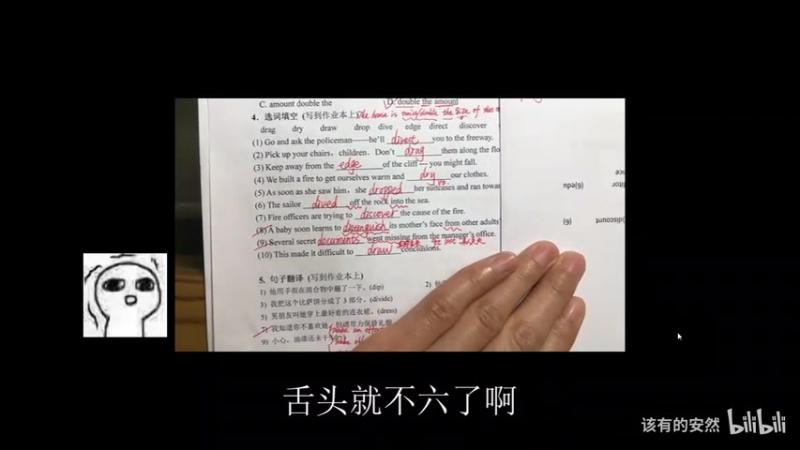 C. amount double the D. double the amount
4. 选词填空 (写到作业本上) the size of
drag dry draw drop dive edge direct discover
(1) Go and ask the policeman—he'll direct you to the freeway.
(2) Pick up your chairs, children. Don't drag them along the flo
(3) Keep away from the edge of the cliff --- you might fall.
(4) We built a fire to get ourselves warm and dry our clothes.
(5) As soon as she saw him, she dropped her suitcases and ran towar
(6) The sailor dived off the rock into the sea.
(7) Fire officers are trying to discover the cause of the fire.
(8) A baby soon learns to distinguish its mother's face from other adults'
(9) Several secret documents went missing from the manager's office.
(10) This made it difficult to draw conclusions.
5. 句子翻译 (写到作业本上)
1) 他用手指在混合物中蘸了一下。(dip) 2)
3) 我把这个比萨饼分成了 3 部分。(divide)
5) 男朋友叫她穿上最好看的连衣裙。(dress)
7) 我知道你不喜欢她
9) 小心，油漆还未干
舌头就不六了啊
该有的安然 bilibili